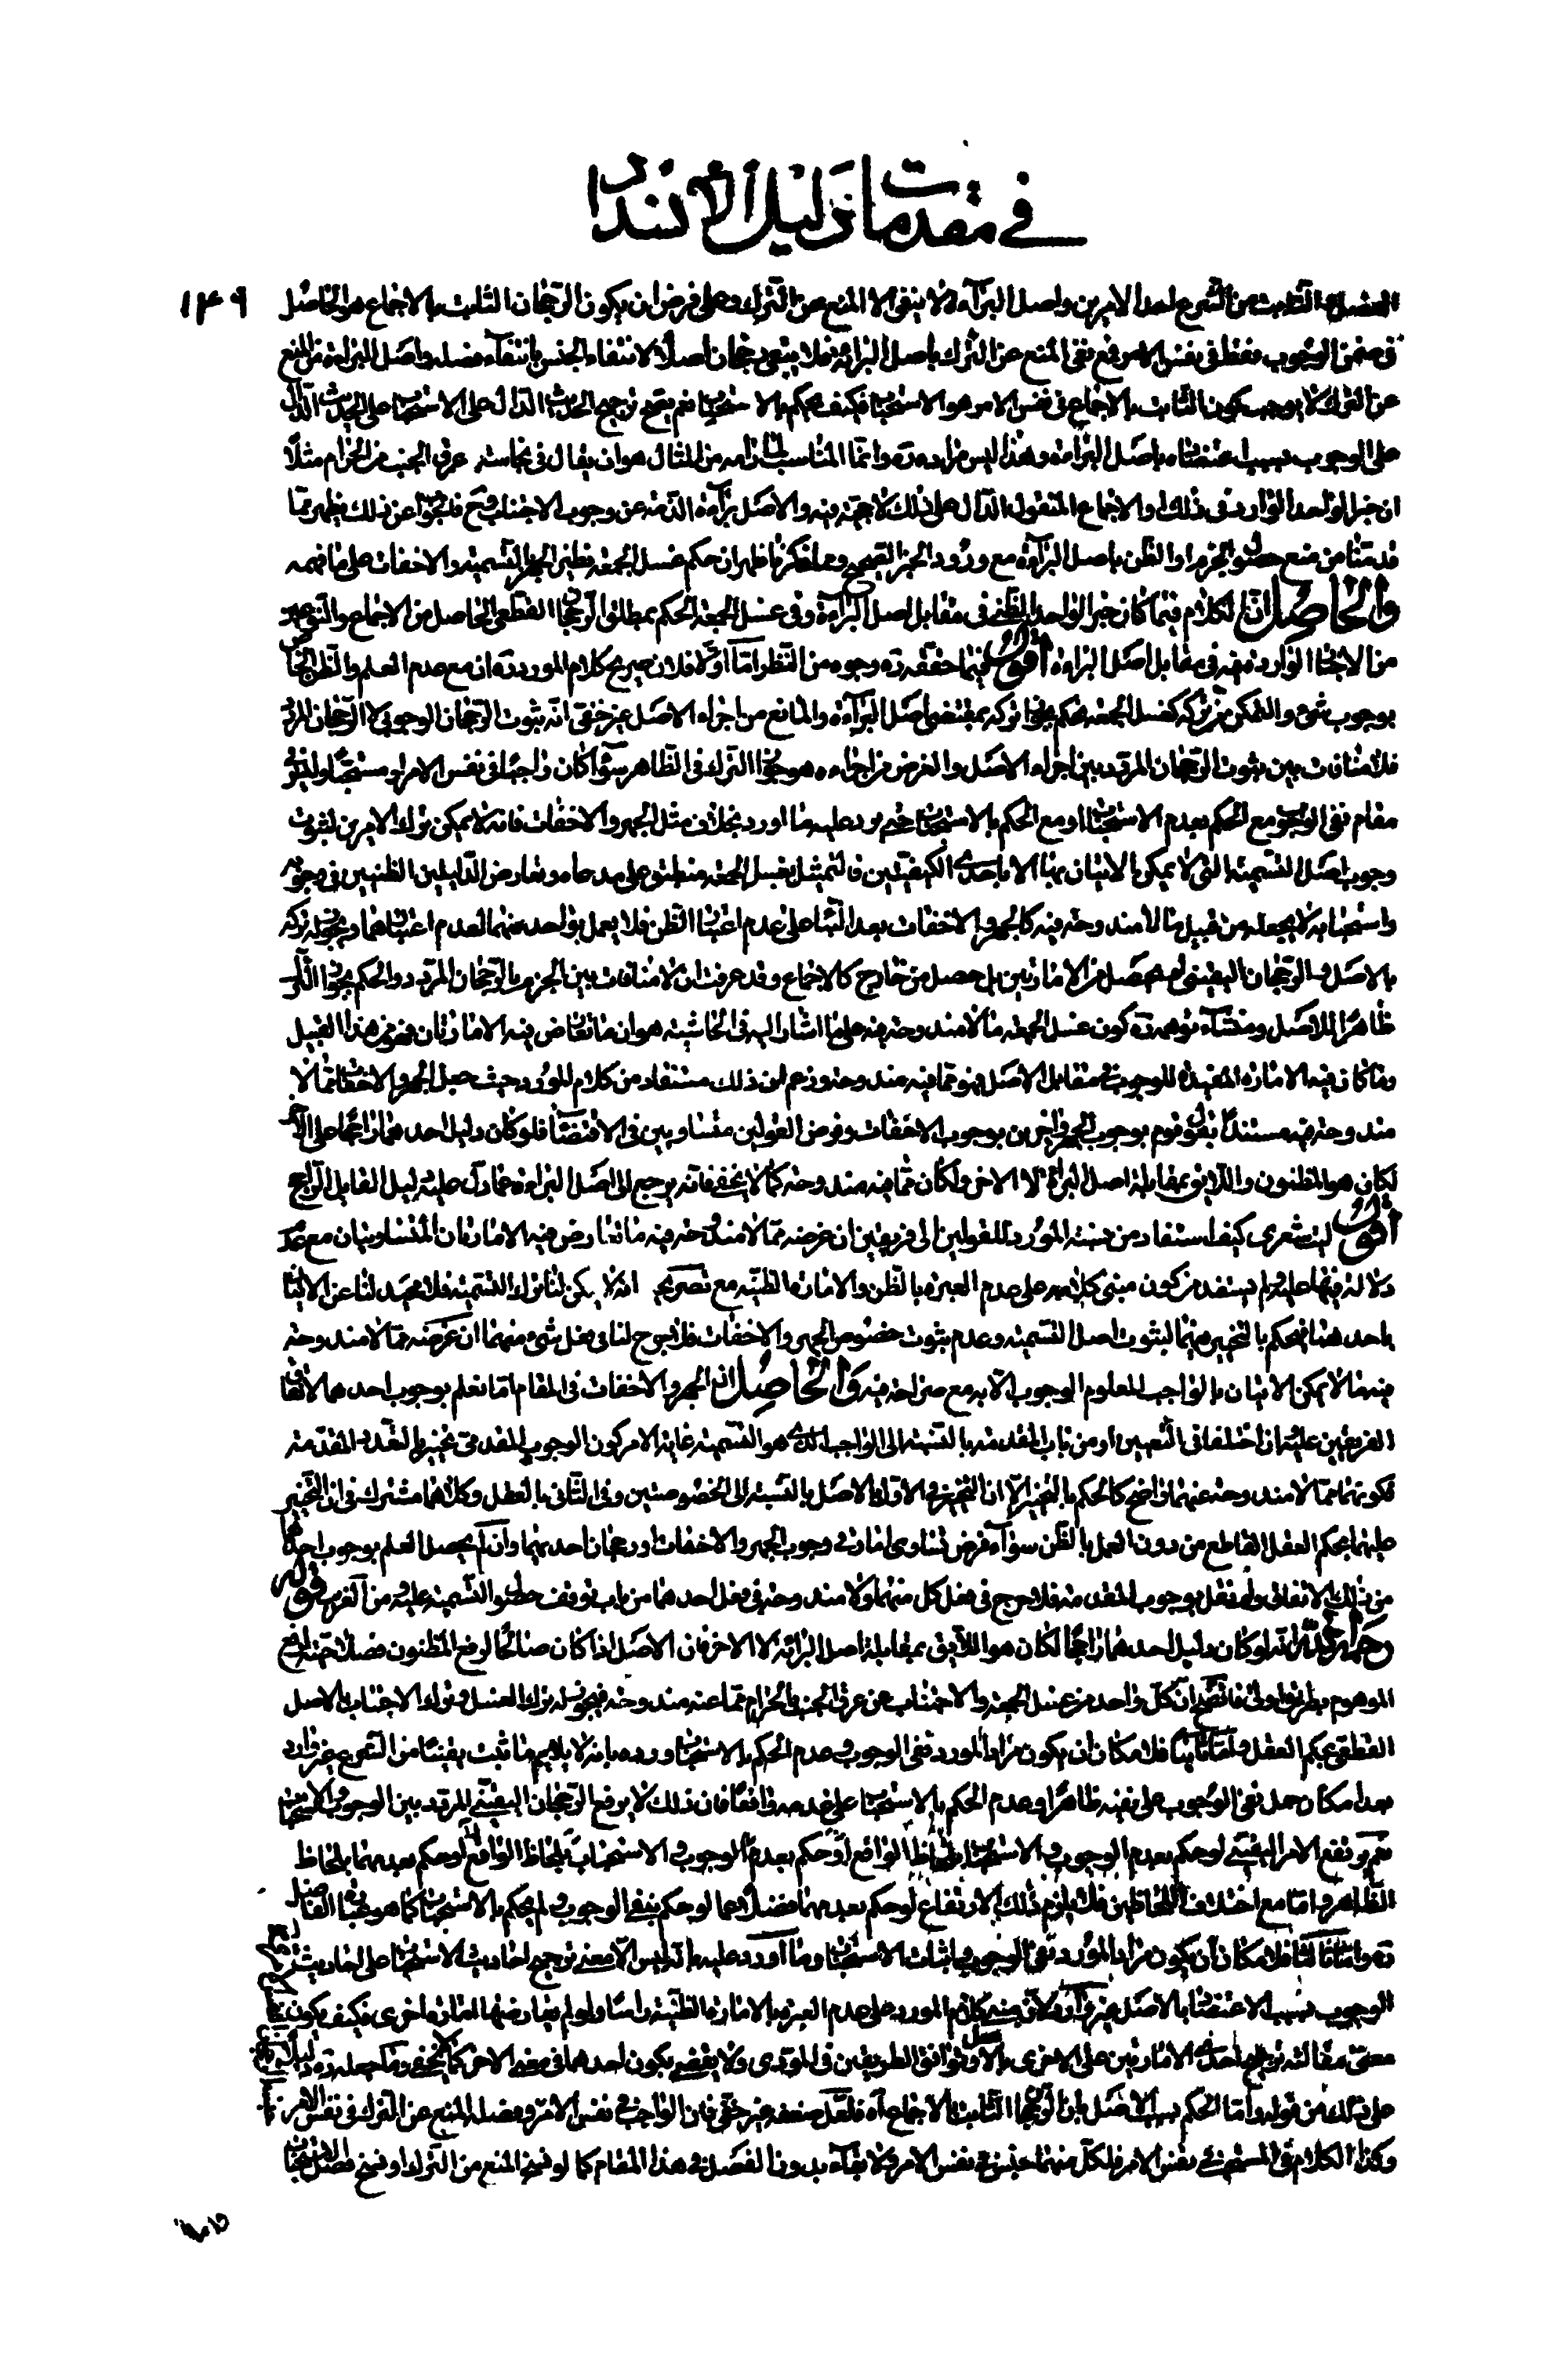 في مقدمات دليل الانسداد
١٤٩
الفصل الثابت من الشرع احد الامرين واصل البرائة لا ينفى الا المنع عن الترك وعلى فرض ان يكون الرجحان الثابت بالاجماع هو الحاصل
في ضمن الوجوب فقط في نفس الامر فمع نفى المنع عن الترك باصل البرائة فلا يبقى رجحان اصلا لانتفاء الجنس بانتفاء فصله واصل البرائة من المنع
عن الترك لا يوجب كون الثابت بالاجماع في نفس الامر هو الاستحباب فكيف يحكم بالاستحباب نعم يصح ترجيح الحديث الدال على الاستحباب على الحديث الدال
على الوجوب بسبب اعتضاده باصل البرائة وهذا ليس مراده ره وانما المناسب لمرامه من المثال هو ان يقال في نجاسة عرق الجنب من الحرام مثلا
ان خبر الواحد الوارد في ذلك او الاجماع المنقول الدال على ذلك لا حجية فيه والاصل برائة الذمة عن وجوب الاجتناب وح فالجواب عن ذلك يظهر مما
قدمنا من منع حصول الجزم او الظن باصل البرائة مع ورود الخبر الصحيح ومما ذكرنا ظهر ان حكم غسل الجمعة نظير الجهر بالتسمية والاخفات على ما فهمه
والحاصل ان الكلام فيما كان خبر الواحد الظنى في مقابل اصل البرائة وفى غسل الجمعة الحكم بمطلق الرجحان القطعى الحاصل من الاجماع والنوعين
من الاخبار الواردة فيه في مقابل اصل البرائة اقول فيما حققه ره وجوه من النظر اما اولا فلان صريح كلام المورد ره ان مع عدم العلم والظن الخاص
بوجوب شئ والتمكن من تركه كغسل الجمعة يحكم بجواز تركه بمقتضى اصل البرائة والمانع من اجراء الاصل غير خفى انه ثبوت الرجحان الوجوبى لا الرجحان المردد
فلا منافات بين ثبوت الرجحان المردد بين اجراء الاصل والغرض من اجراءه هو جواز الترك في الظاهر سواء كان واجبا في نفس الامر او مستحبا وليس في
مقام نفى الوجوب مع الحكم بعدم الاستحباب او مع الحكم بالاستحباب حتى يرد عليه ما اورد بخلاف مثل الجهر والاخفات فانه لا يمكن ترك الامرين لثبوت
وجوب اصل التسمية التى لا يمكن الاتيان بها الا باحدى الكيفيتين فالتمثيل بغسل الجمعة منطبق على مدعاه وتعارض الدليلين الظنيين في وجوبه
واستحبابه لا يجعله من قبيل ما لا مندوحة فيه كالجهر والاخفات بعد البناء على عدم اعتبار الظن فلا يعمل بواحد منهما لعدم اعتبارهما ويجوز تركه
بالاصل والرجحان اليقينى لم يحصل من الامارتين بل حصل من خارج كالاجماع وقد عرفت ان لا منافات بين الجزم بالرجحان المردد والحكم بجواز الترك
ظاهرا للاصل ومنشاء توهمه ره كون غسل الجمعة مما لا مندوحة فيه على ما اشار اليه في الحاشية هو ان ما تعارض فيه الامارتان فهو من هذا القبيل
وما كان فيه الامارة المفيدة للوجوب في مقابل الاصل فهو مما فيه مندوحة وزعم ان ذلك مستفاد من كلام المورد حيث جعل الجهر والاخفات مما لا
مندوحة فيه مستندا بقول قوم بوجوب الجهر واخرين بوجوب الاخفات وفرض القولين متساويين في الاقتضاء فلو كان دليل احدهما راجحا على الاخر
لكان هو المظنون واللايق بمقابلة اصل البرائة لا الاخر ولكان مما فيه مندوحة كما لا يخفى فانه يرجع الى اصل البرائة عما دل عليه دليل القابل الراجح
اقول ليت شعرى كيف استفاد من نسبة المورد للقولين الى فريقين ان غرضه مما لا مندوحة فيه ما تعارض فيه الامارتان المتساويتان مع عدم
دلالة فيها عليه ولم يستفد من كون مبنى كلامه على عدم العبرة بالظن والامارة الظنية مع تصريحه انه لا يمكن لنا ترك التسمية فلا محيد لنا عن الاتيان
باحدهما فيحكم بالتخيير فيهما لثبوت اصل التسمية وعدم ثبوت خصوص الجهر والاخفات فلا حرج لنا في فعل شئ منهما ان غرضه مما لا مندوحة
فيه ما لا يمكن الاتيان بالواجب المعلوم الوجوب الا به مع صراحته فيه والحاصل ان الجهر والاخفات في المقام اما نعلم بوجوب احدهما لاتفاق
الفريقين عليه ان اختلفا في التعيين او من باب المقدمة بالنسبة الى الواجب الذى هو التسمية غاية الامر كون الوجوب المقدمى تخييريا لتعدد المقدمة
فكونهما مما لا مندوحة عنهما واضح كالحكم بالتخيير الا ان التخيير في الاول بالاصل بالنسبة الى الخصوصيتين وفى الثانى بالعقل وكلاهما مشترك في ان التخيير
عليهما بحكم العقل القاطع من دون العمل بالظن سواء فرض تساوى امارتى وجوب الجهر والاخفات او رجحان احديهما وان لم يحصل العلم بوجوب احدهما
من ذلك الاتفاق ولم نقل بوجوب المقدمة فلا حرج في فعل كل منهما ولا مندوحة في فعل احدهما من باب توقف حصول التسمية عليه من الغرض قوله
رحمه الله انه لو كان دليل احدهما راجحا لكان هو اللايق بمقابلة اصل البرائة لا الاخر فان الاصل اذا كان صالحا لرفع المظنون فصلاحيته لرفع
الموهوم بطريق اولى فاتضح ان كل واحد من غسل الجمعة والاجتناب عن عرق الجنب بالحرام مما عنه مندوحة فيجوز له ترك الغسل وترك الاجتناب بالاصل
القطعى بحكم العقل واما ثانيا فلامكان ان يكون مراد المورد نفى الوجوب وعدم الحكم بالاستحباب ورده بانه لا يلايم ما ثبت يقينا من الشرع غير وارد
بعد امكان حمل نفى الوجوب على نفيه ظاهرا وعدم الحكم بالاستحباب على عدمه واقعا فان ذلك لا يرفع الرجحان اليقينى المردد بين الوجوب والاستحباب
نعم يرتفع الامر اليقينى لو حكم بعدم الوجوب والاستحباب بلحاظ الواقع او حكم بعدم الوجوب والاستحباب بلحاظ الواقع او حكم بعدمهما بلحاظ
الظاهر واما مع اختلاف اللحاظين فلا يلزم ذلك الارتفاع لو حكم بعدمهما فضلا عما لو حكم بنفى الوجوب ولم يحكم بالاستحباب كما هو عبارة الفاضل
ره واما ثالثا فلامكان ان يكون مراد المورد نفى الوجوب واثبات الاستحباب وما اورد عليه بانه ليس الا معنى ترجيح احاديث الاستحباب على احاديث
الوجوب بسبب الاعتضاد بالاصل غير وارد لان مبنى كلام المورد على عدم العبرة بالامارة الظنية راسا ولو لم يعارضها امارة اخرى فكيف يكون
معنى مقالته ترجيح احدى الامارتين على الاخرى بالاصل وتوافق الطريقين في المودى لا يقتضى بكون احدهما في معنى الاخر كما لا يخفى وما جعله ره دليلا
على ذلك من قوله واما الحكم بسبب الاصل بان الرجحان الثابت بالاجماع اه فلعل ضعفه غير خفى فان الواجب في نفس الامر وفصله المنع عن الترك في نفس الامر
وكذا الكلام في المستحب في نفس الامر فلكل منهما جنس في نفس الامر ولا بقاء بدون الفصل في هذا المقام كما لو نسخ المنع من الترك او نسخ فصل الاستحباب